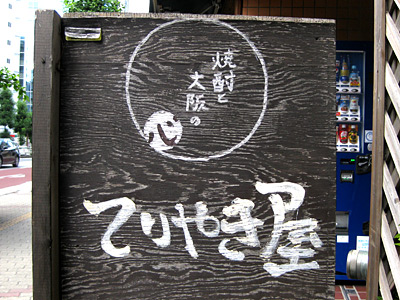 焼酎と
大阪の
てりやき屋